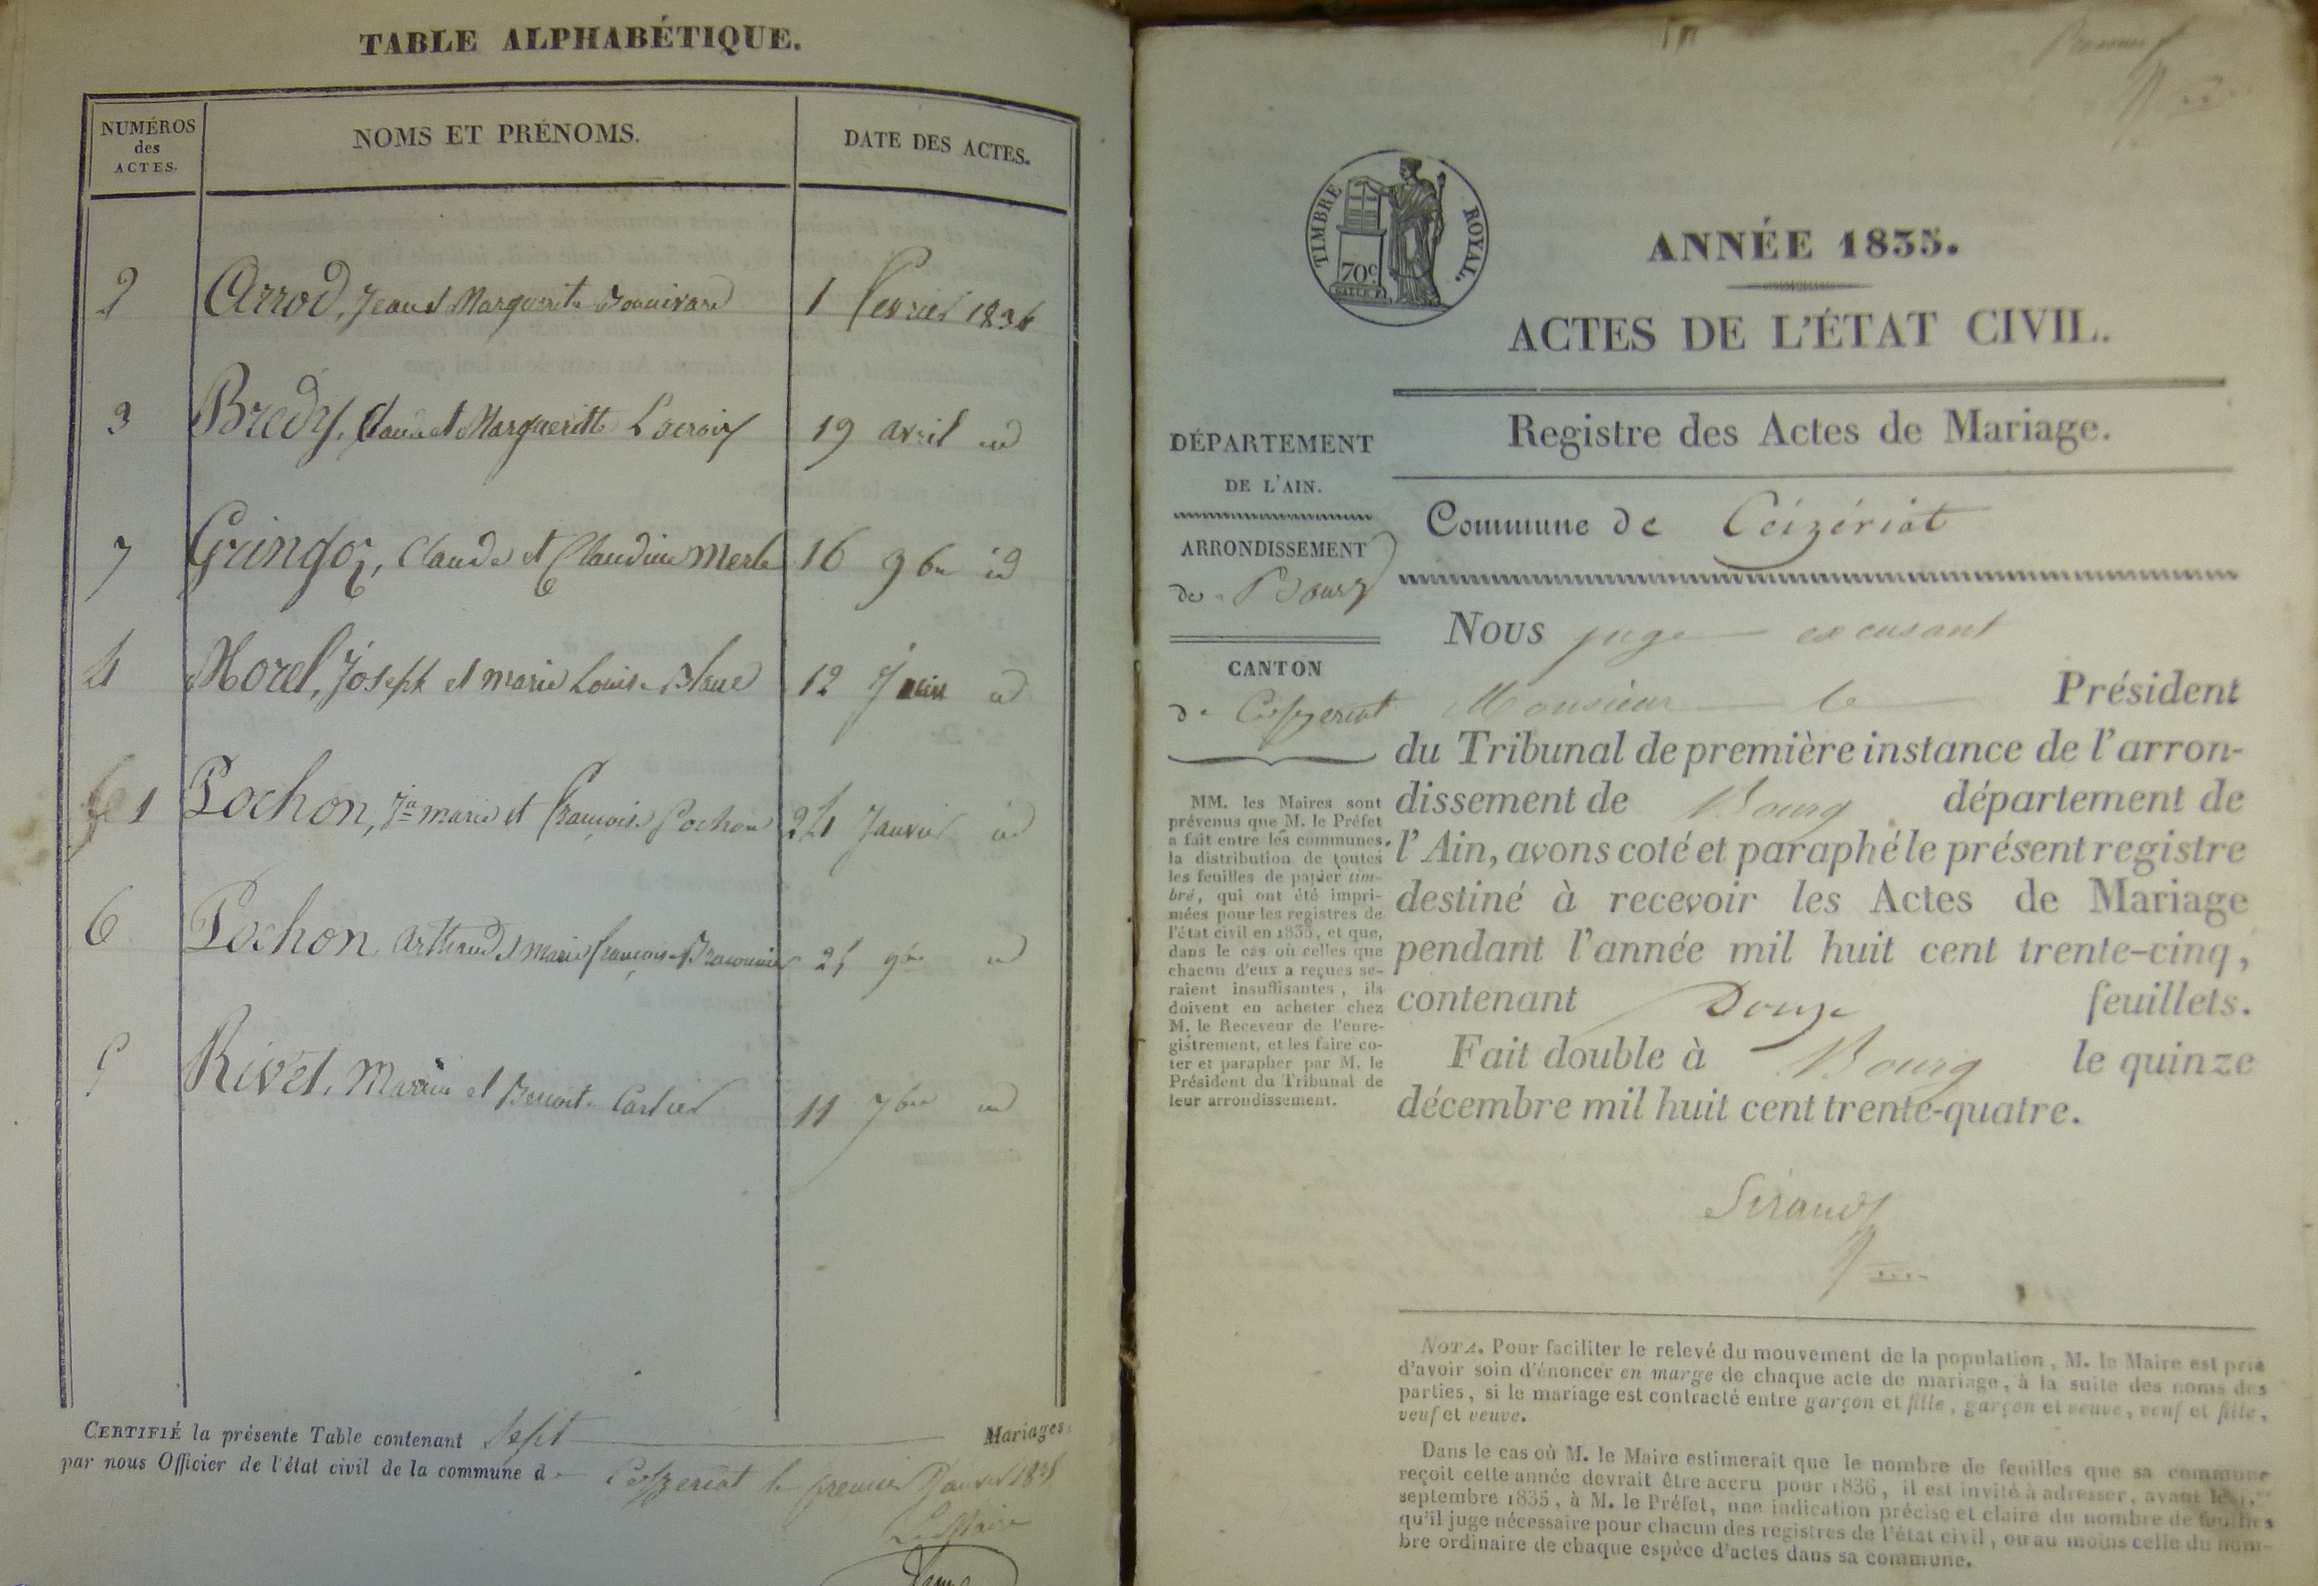 TABLE ALPHABÉTIQUE.
NUMÉROS des ACTES.
NOMS ET PRÉNOMS.
DATE DES ACTES.
2 Arrod, Jean et Marguerite Bonnivard 1 fevrier 1834
3 Bredy, Claude et Margueritte Lacroix 19 avril id
7 Gringoz, Claude et Claudine Merle 16 9bre id
4 Morel, Joseph et marie Louise Blanc 12 Juin id
1 Pochon, Jn marie et françoise Pochon 21 Janvier id
6 Pochon Arthaud et marie françoise 9bre id
5 Rivet, Marie et Benoit Cartier 11 7bre id
CERTIFIÉ la présente Table contenant Sept Mariages.
par nous Officier de l'état civil de la commune de Ceyzeriat le premier Janvier 1835
Le Maire
TIMBRE ROYAL.
70c.
ANNÉE 1835.
ACTES DE L'ÉTAT CIVIL.
Registre des Actes de Mariage.
DÉPARTEMENT
DE L'AIN.
ARRONDISSEMENT
de Bourg
CANTON
de Ceyzeriat
MM. les Maires sont
prévenus que M. le Préfet
a fait entre les communes,
la distribution de toutes
les feuilles de papier tim-
bré, qui ont été impri-
mées pour les registres de
l'état civil en 1835, et que,
dans le cas où celles que
chacun d'eux a reçues se-
raient insuffisantes, ils
doivent en acheter chez
M. le Receveur de l'enre-
gistrement, et les faire co-
ter et parapher par M. le
Président du Tribunal de
leur arrondissement.
Commune de Ceizériat
Nous juge excusant
Monsieur le Président
du Tribunal de première instance de l'arron-
dissement de Bourg département de
l'Ain, avons coté et paraphé le présent registre
destiné à recevoir les Actes de Mariage
pendant l'année mil huit cent trente-cinq,
contenant Douze feuillets.
Fait double à Bourg le quinze
décembre mil huit cent trente-quatre.
Sirand
NOTA. Pour faciliter le relevé du mouvement de la population, M. le Maire est prié
d'avoir soin d'énoncer en marge de chaque acte de mariage, à la suite des noms des
parties, si le mariage est contracté entre garçon et fille, garçon et veuve, veuf et fille,
veuf et veuve.
Dans le cas où M. le Maire estimerait que le nombre de feuilles que sa commune
reçoit cette année devrait être accru pour 1836, il est invité à adresser, avant le 1.er
septembre 1835, à M. le Préfet, une indication précise et claire du nombre de feuilles
qu'il juge nécessaire pour chacun des registres de l'état civil, ou au moins celle du nom-
bre ordinaire de chaque espèce d'actes dans sa commune.